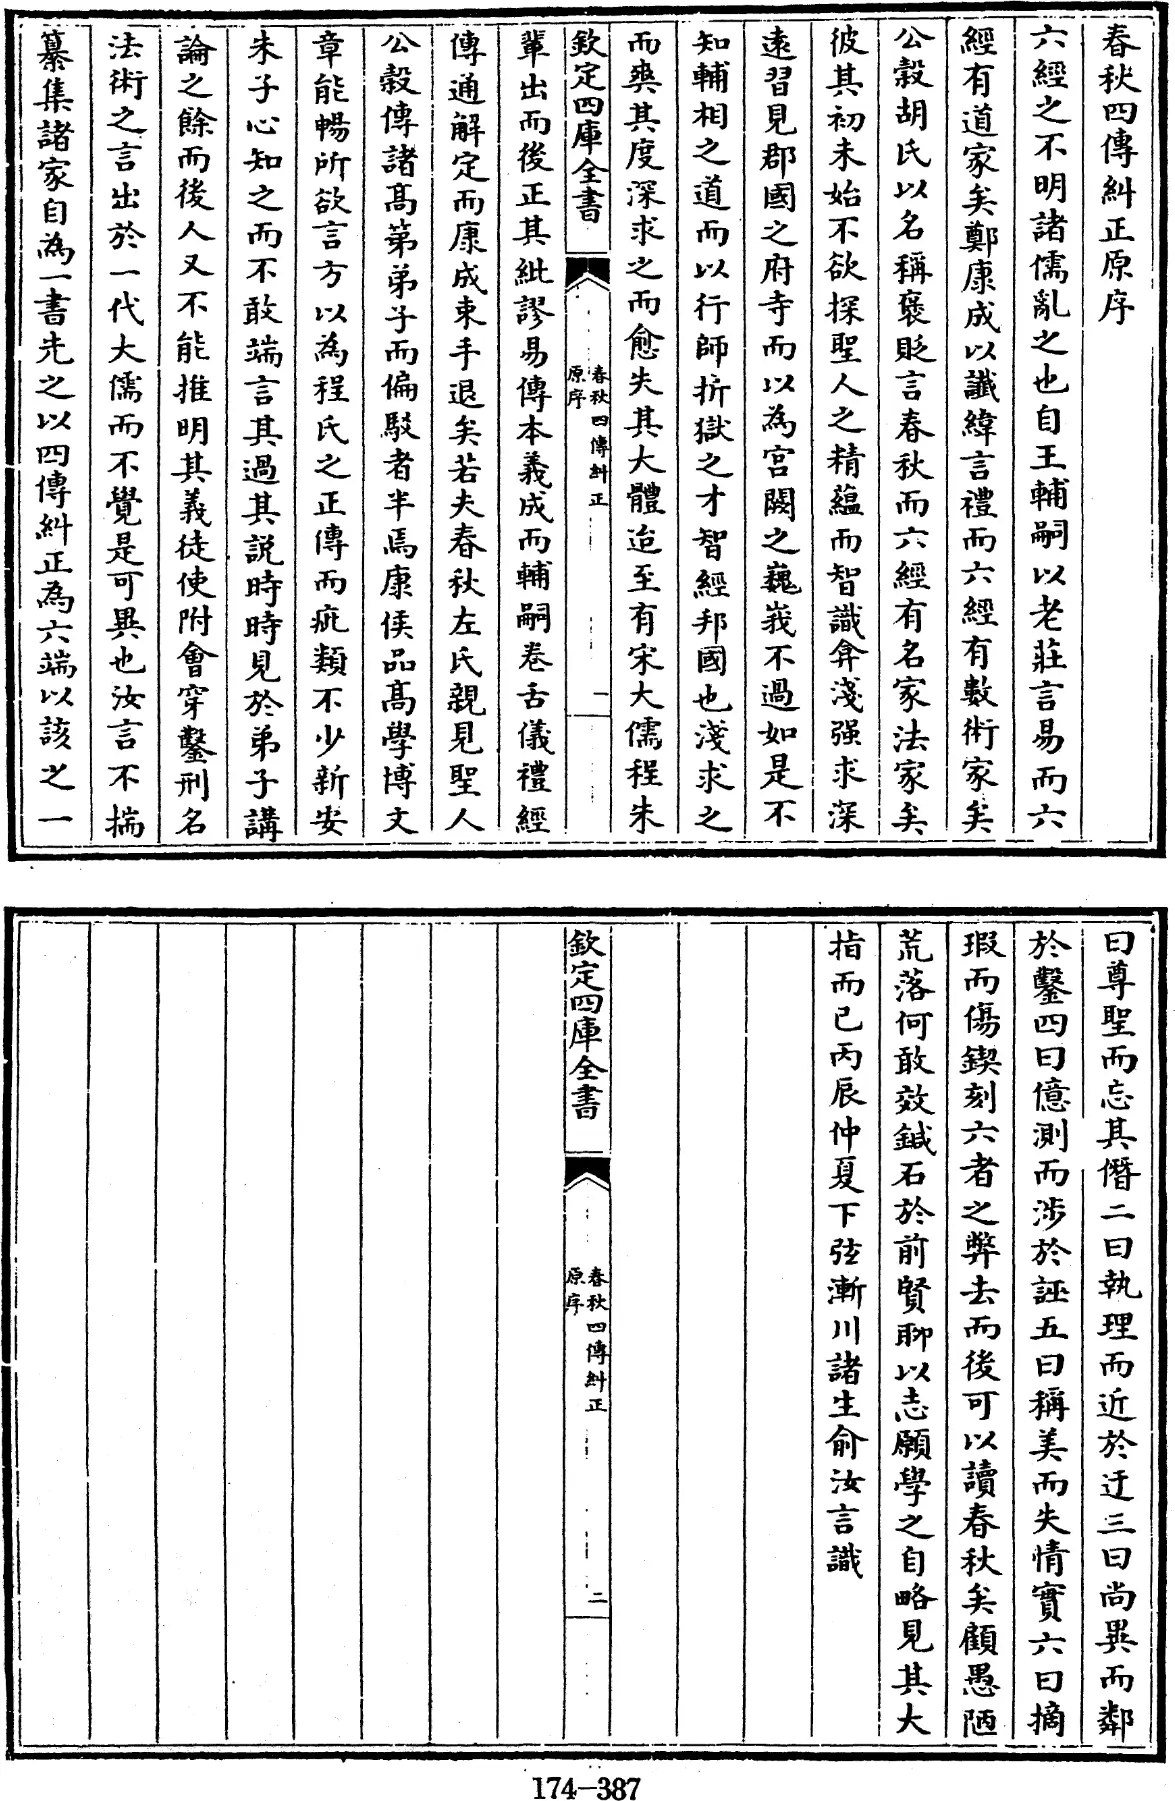 春秋四傳糾正原序
六經之不明諸儒亂之也自王輔嗣以老莊言易而六
經有道家矣鄭康成以讖緯言禮而六經有數術家矣
公穀胡氏以名稱褒貶言春秋而六經有名家法家矣
彼其初未始不欲探聖人之精蘊而智識弇淺强求深
遠習見郡國之府寺而以為宮闕之巍峩不過如是不
知輔相之道而以行師折獄之才智經邦國也淺求之
而爽其度深求之而愈失其大體迨至有宋大儒程朱
欽定四庫全書
春秋四傳糾正
原序
一
輩出而後正其紕謬易傳本義成而輔嗣卷舌儀禮經
傳通解定而康成束手退矣若夫春秋左氏親見聖人
公穀傳諸高第弟子而偏駁者半焉康侯品高學博文
章能暢所欲言方以為程氏之正傳而疵纇不少新安
朱子心知之而不敢端言其過其説時時見於弟子講
論之餘而後人又不能推明其義徒使附會穿鑿刑名
法術之言出於一代大儒而不覺是可異也汝言不揣
纂集諸家自為一書先之以四傳糾正為六端以該之一
曰尊聖而忘其僭二曰執理而近於迂三曰尚異而鄰
於鑿四曰億測而涉於誣五曰稱美而失情實六曰摘
瑕而傷鍥刻六者之弊去而後可以讀春秋矣顧愚陋
荒落何敢效鍼石於前賢聊以志願學之自略見其大
指而已丙辰仲夏下弦漸川諸生俞汝言識
欽定四庫全書
春秋四傳糾正
原序
二
174-387